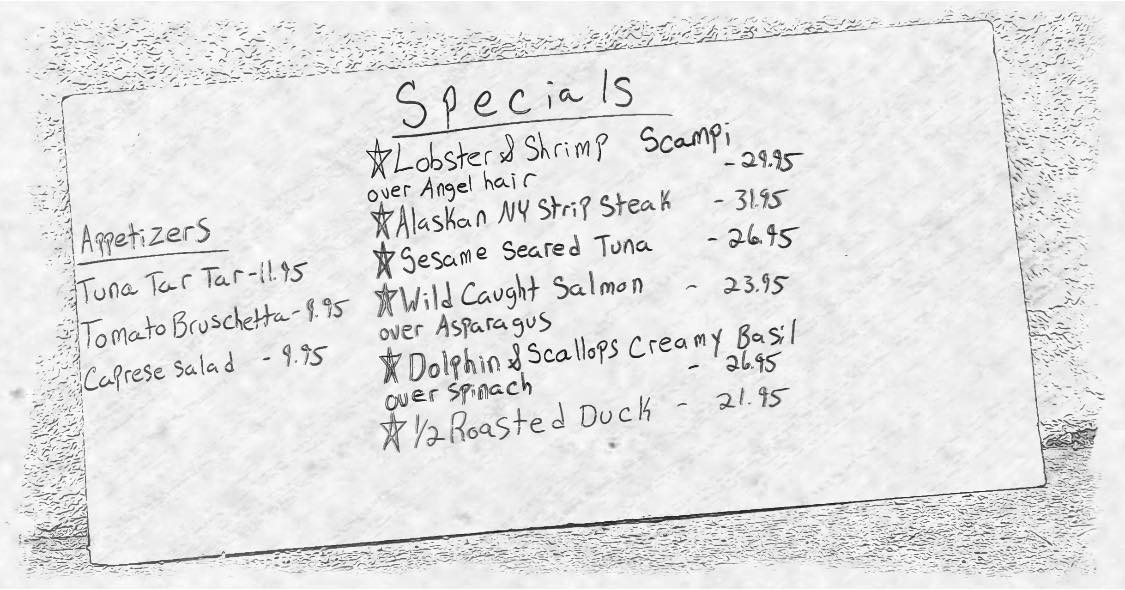 Specials
☆Lobster & Shrimp Scampi
over Angel hair - 29.95
☆Alaskan NY Strip Steak - 31.95
☆Sesame Seared Tuna - 26.95
☆Wild Caught Salmon - 23.95
over Asparagus
☆Dolphin & Scallops Creamy Basil
over Spinach - 26.95
☆1/2 Roasted Duck - 21.95
Appetizers
Tuna Tar Tar - 11.95
Tomato Bruschetta - 9.95
Caprese Salad - 9.95